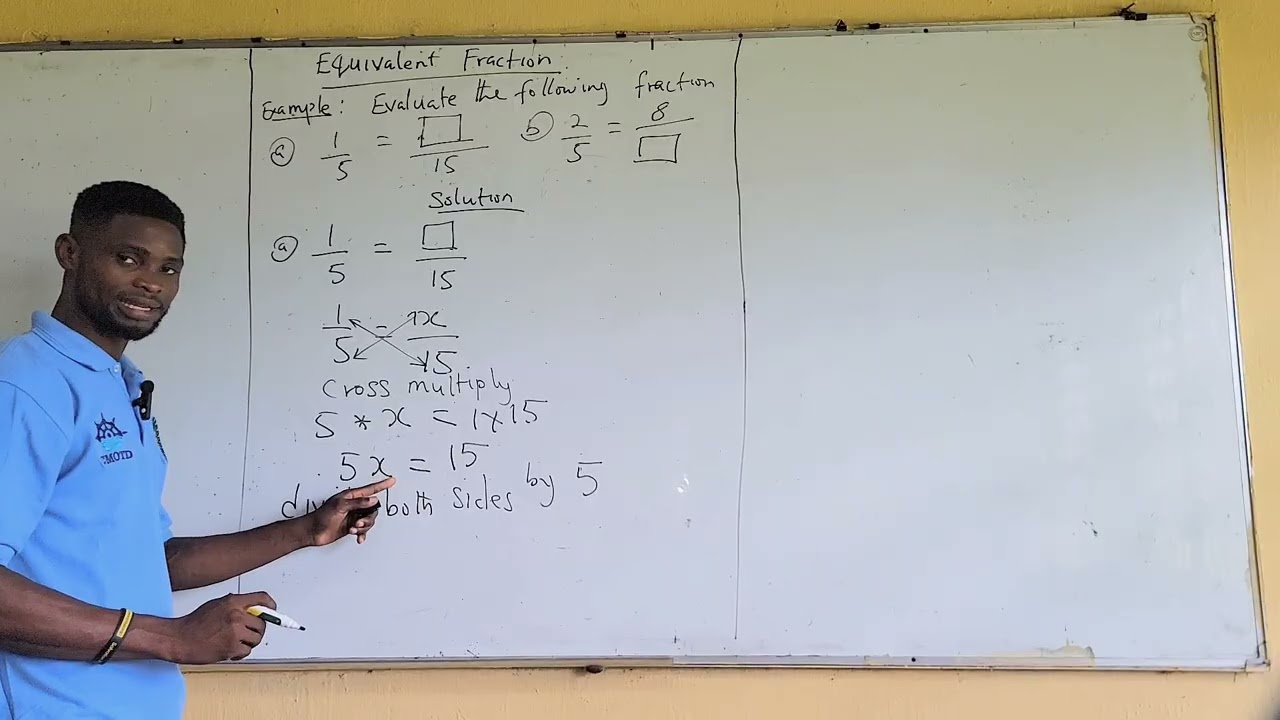 Equivalent Fraction
Example: Evaluate the following fraction
(a) 1/5 = □/15 (b) 2/5 = 8/□
Solution
(a) 1/5 = □/15
1/5 = x/15
Cross multiply
5 * x = 1 x 15
5x = 15
both sides by 5